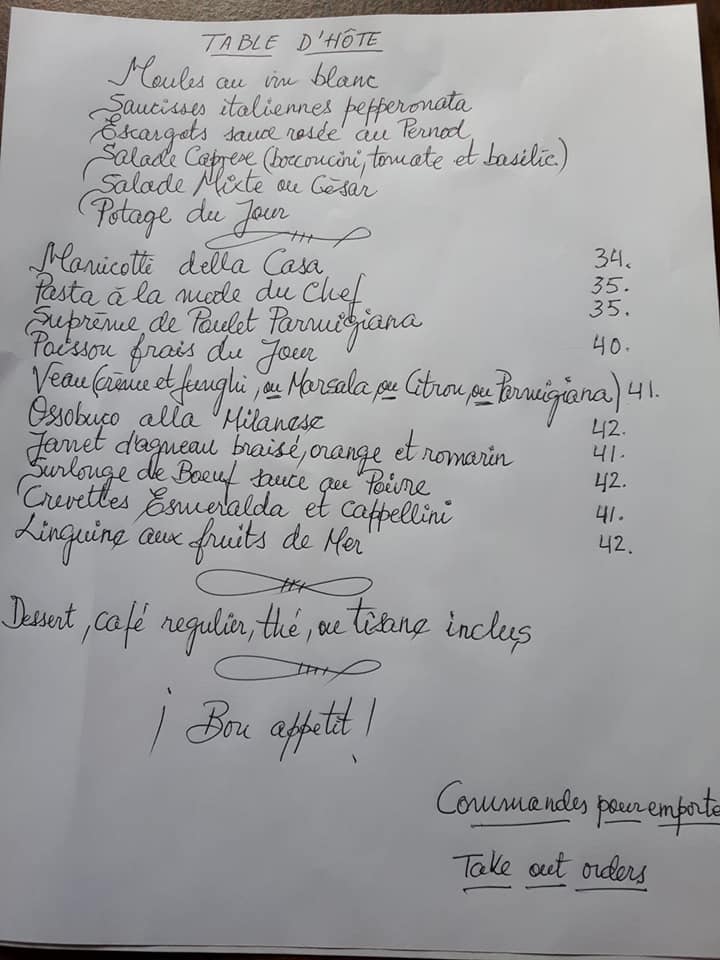 TABLE D'HÔTE
Moules au vin blanc
Saucisses italiennes pepperonata
Escargots sauce rosée au Pernod
Salade Caprese (bocconcini, tomate et basilic)
Salade Mixte ou César
Potage du Jour
Manicotti della Casa 34.
Pasta à la mode du Chef 35.
Suprême de Poulet Parmigiana 35.
Poisson frais du Jour 40.
Veau (crème et funghi, ou Marsala, ou Citron, ou Parmigiana) 41.
Ossobuco alla Milanese 42.
Jarret d'agneau braisé, orange et romarin 41.
Surlonge de Boeuf sauce au Poivre 42.
Crevettes Esmeralda et Cappellini 41.
Linguine aux fruits de Mer 42.
Dessert, café regulier, thé, ou tisane inclus
¡ Bon appetit !
Commandes pour emporte
Take out orders